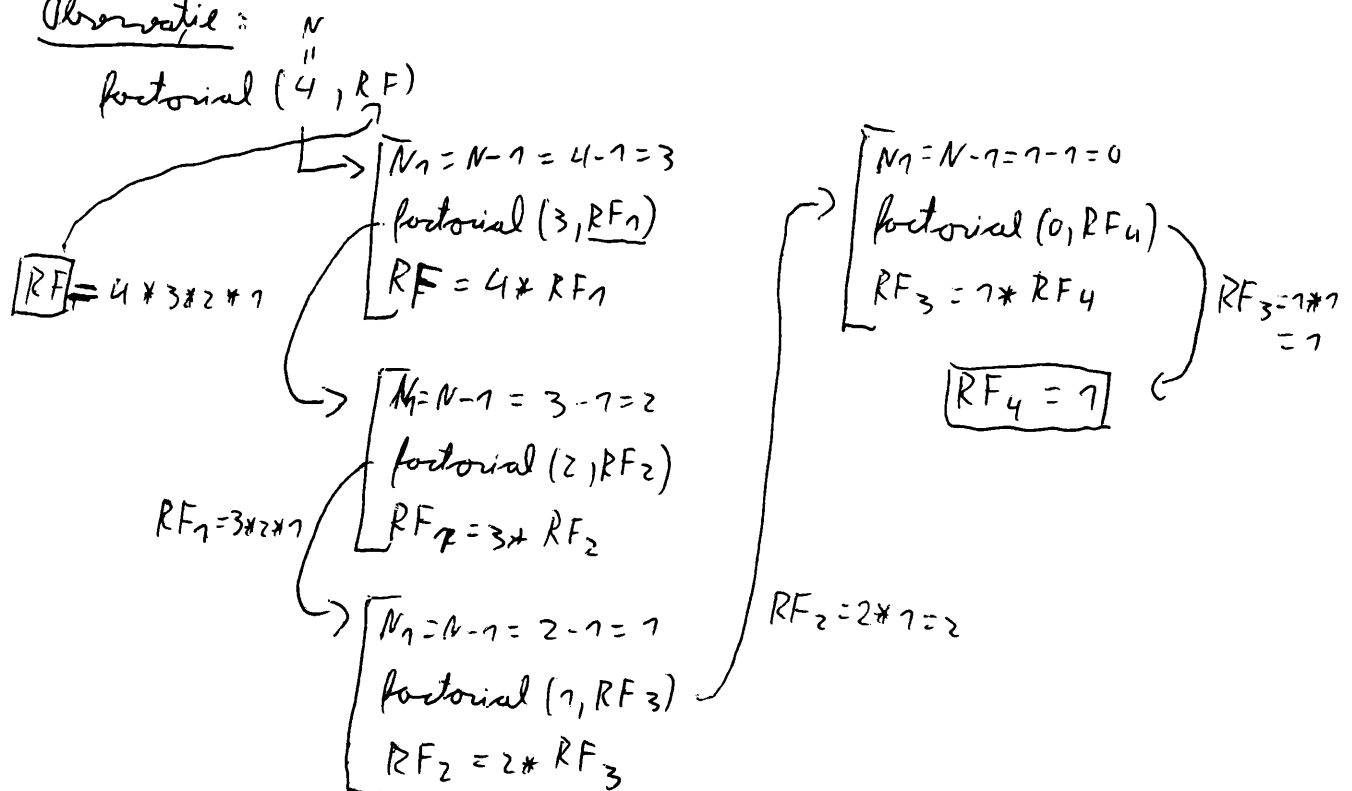 Observație :
N
=
factorial (4 , RF)
N₁ = N-1 = 4-1 = 3
factorial (3, RF₁)
RF = 4 * RF₁
RF = 4 * 3 * 2 * 1
N₁ = N-1 = 3-1 = 2
factorial (2, RF₂)
RF₁ = 3 * RF₂
RF₁ = 3*2*1
N₁ = N-1 = 2-1 = 1
factorial (1, RF₃)
RF₂ = 2 * RF₃
RF₂ = 2*1 = 2
N₁ = N-1 = 1-1 = 0
factorial (0, RF₄)
RF₃ = 1* RF₄
RF₃ = 1*1
= 1
RF₄ = 1